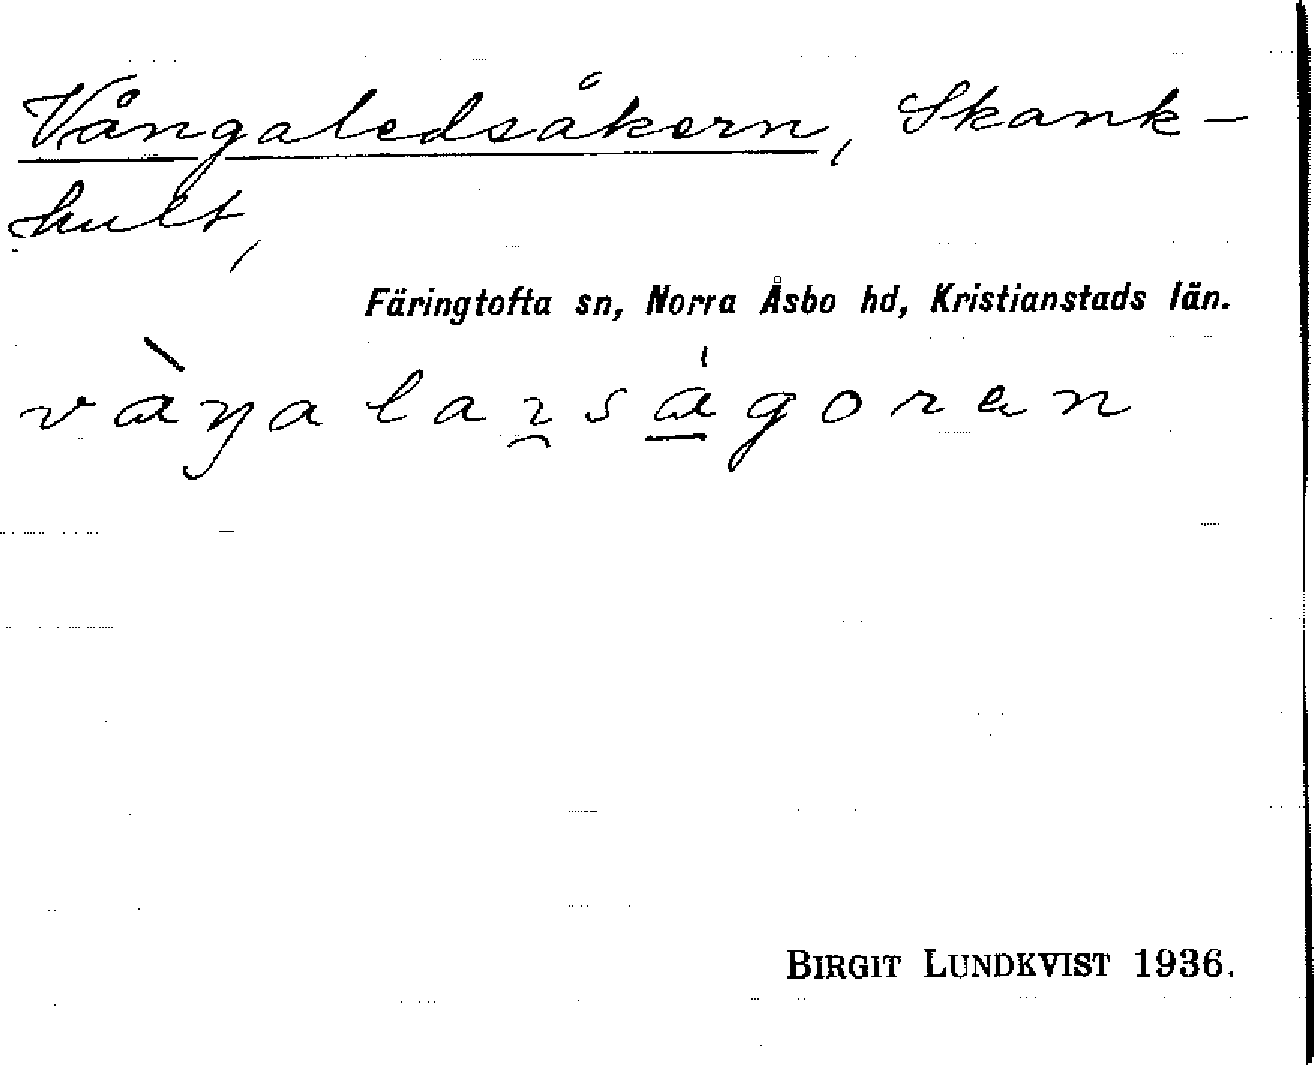 Vångaledsåkern, Skank-
hult,
Färingtofta sn, Norra Åsbo hd, Kristianstads län.
BIRGIT LUNDKVIST 1936.